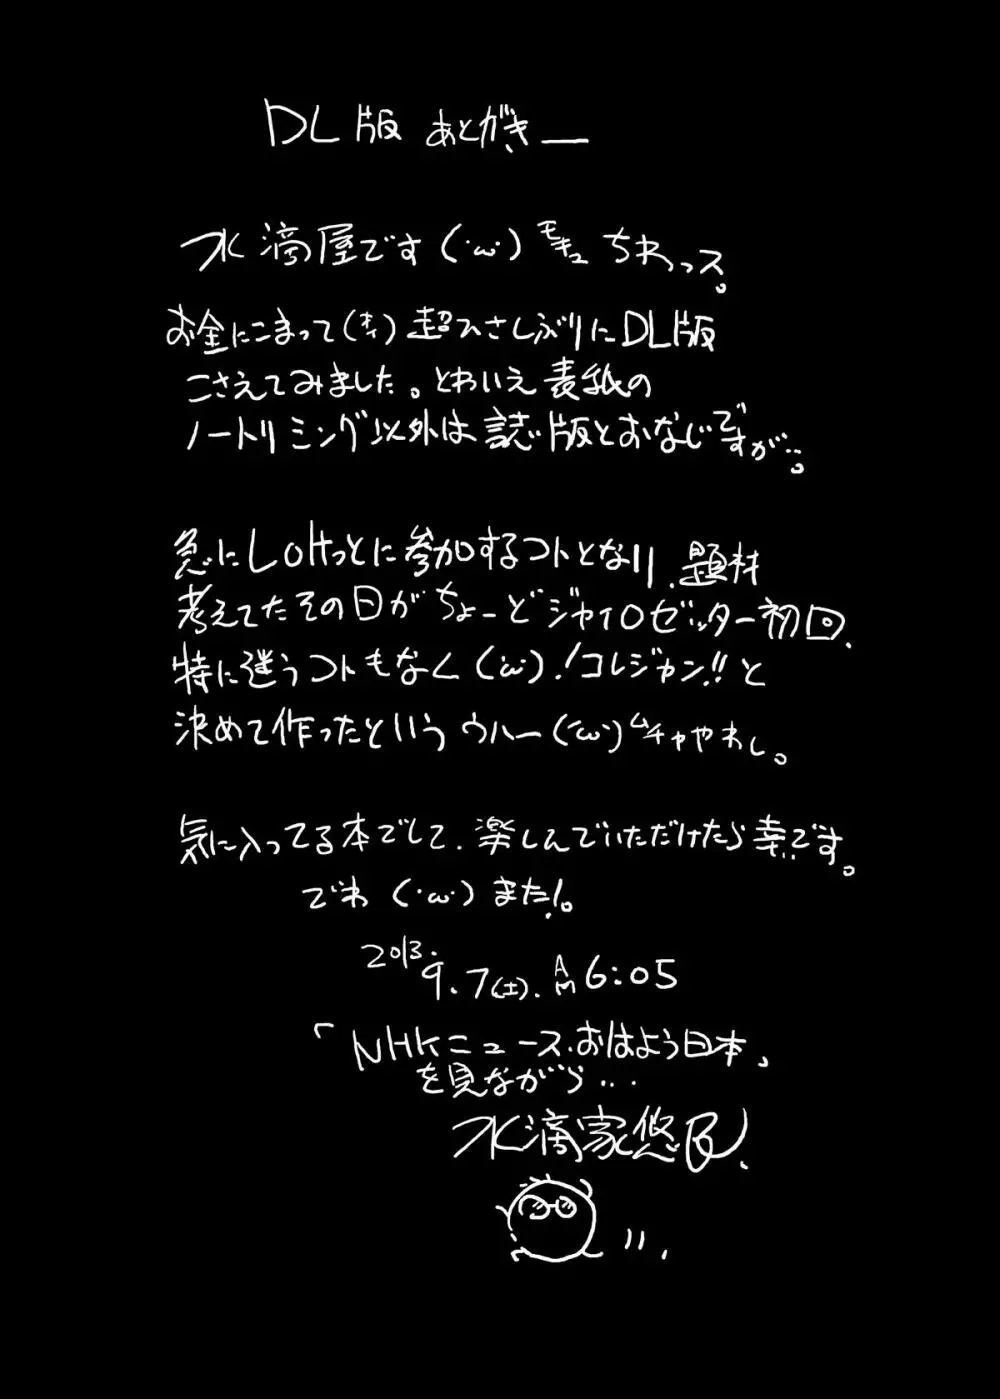 DL版 あとがきー
水滴屋です(・ω・)モキュ ちわっス。
お金にこまって(オイ)超ひさしぶりにDL版
こさえてみました。とわいえ表紙の
ノートリミング以外は誌版とおなじですが…。
急にLOHっとに参加するコトとなり、題材
考えてたその日がちょーどジャイロゼッター初回、
特に迷うコトもなく(・ω・)!コレジャン!!と
決めて作ったという ウハー(・ω・)ムチャやわし。
気に入ってる本でして、楽しんでいただけたら幸いです。
でわ(・ω・)また!。
2013.9.7(土).AM6:05
「NHKニュース.おはよう日本」
を見ながら…
水滴家悠